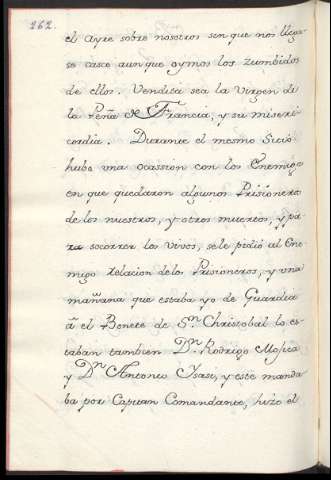 262.
el ayre sobre nosotros sen que nos llega-
se casco aunque oymos los zumbidos
de ellos. Vendita sea la Virgen de
la Peña de Francia, y su miseri
cordia. Durante el mesmo Sitio
hubo una ocassion con los Enemigos
en que quedaron algunos Prisioneros
de los nuestros, y otros muertos, y pa
ra socorrer los vivos, se le pidió al Ene
migo relacion de los Prisioneros, y una
mañana que estaba yo de Guardia
â el Bonete de Sn. Christobal lo es
taban tambien Dn. Rodrigo Mojica
y Dn. Antonio Isasi, y este manda
ba por Capitan Comandante, hizo el